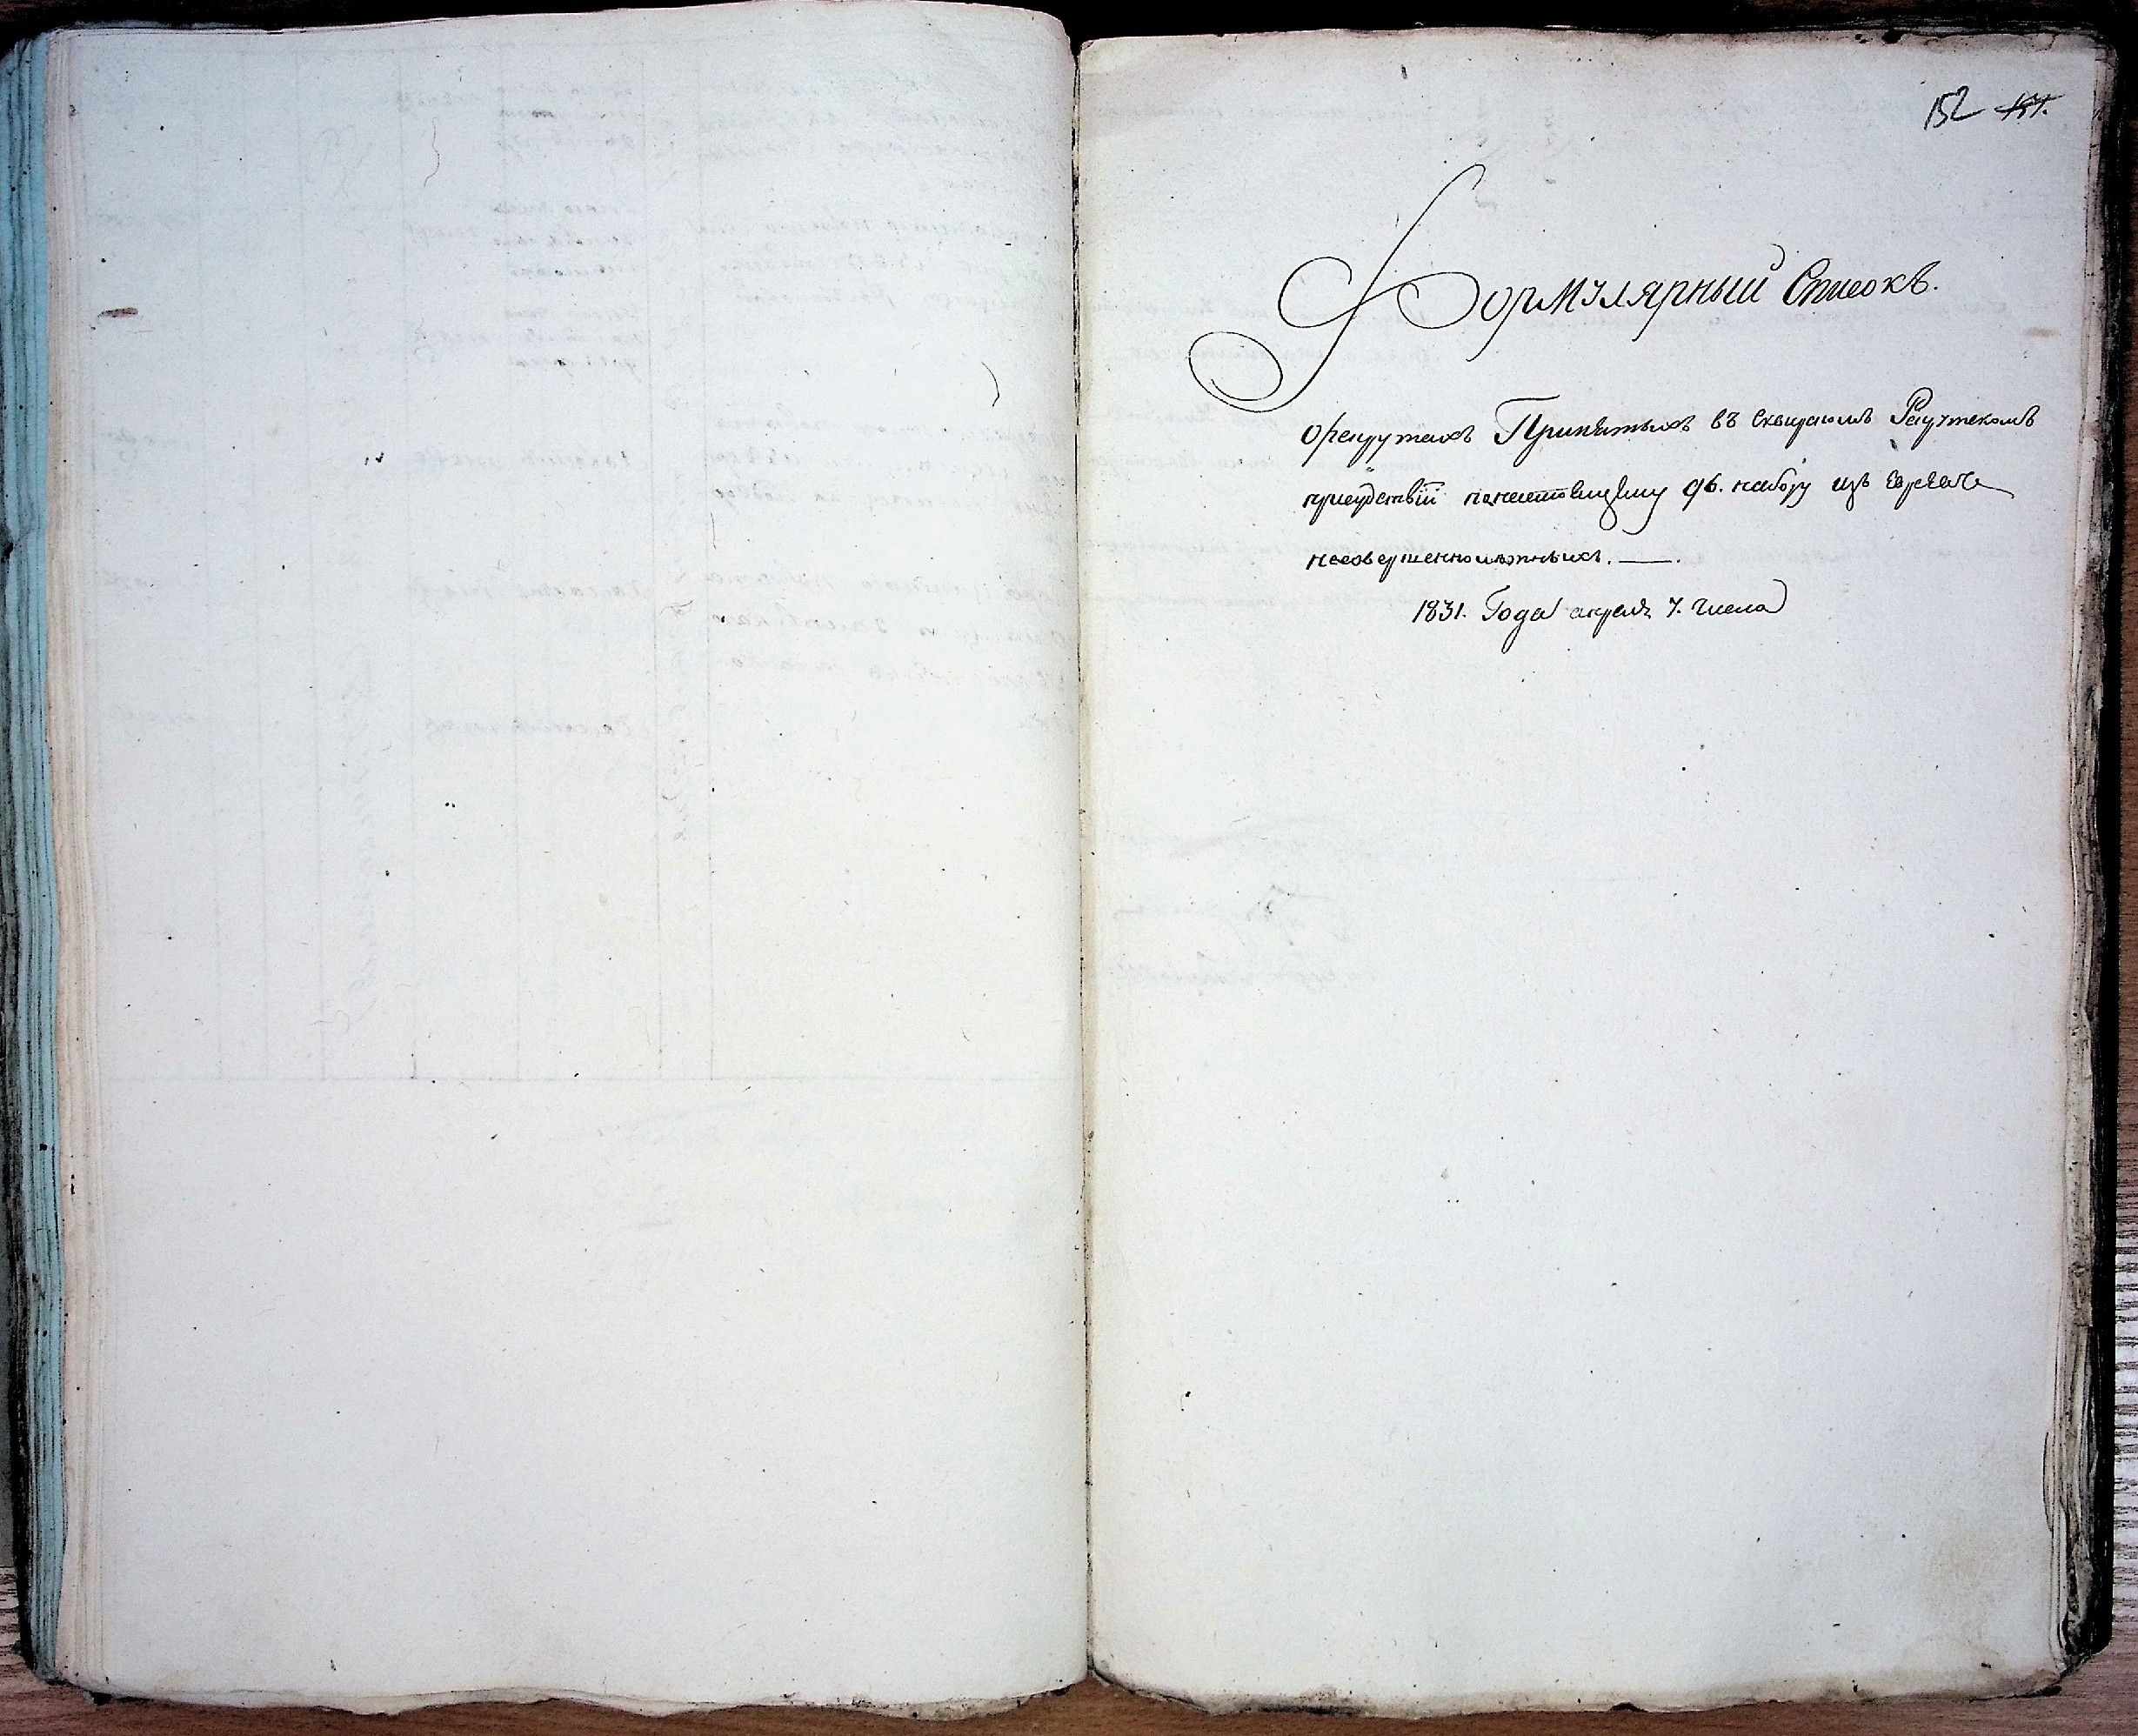 152 151.
Формулярный Списокъ.
о рекрутахъ Принятыхъ въ сквирскомъ Рекрутскомъ
присудствіи понастоящему 96. набору изъ евреевъ
несовершеннолѣтныхъ. — .
1831. Года апреля 7. числа